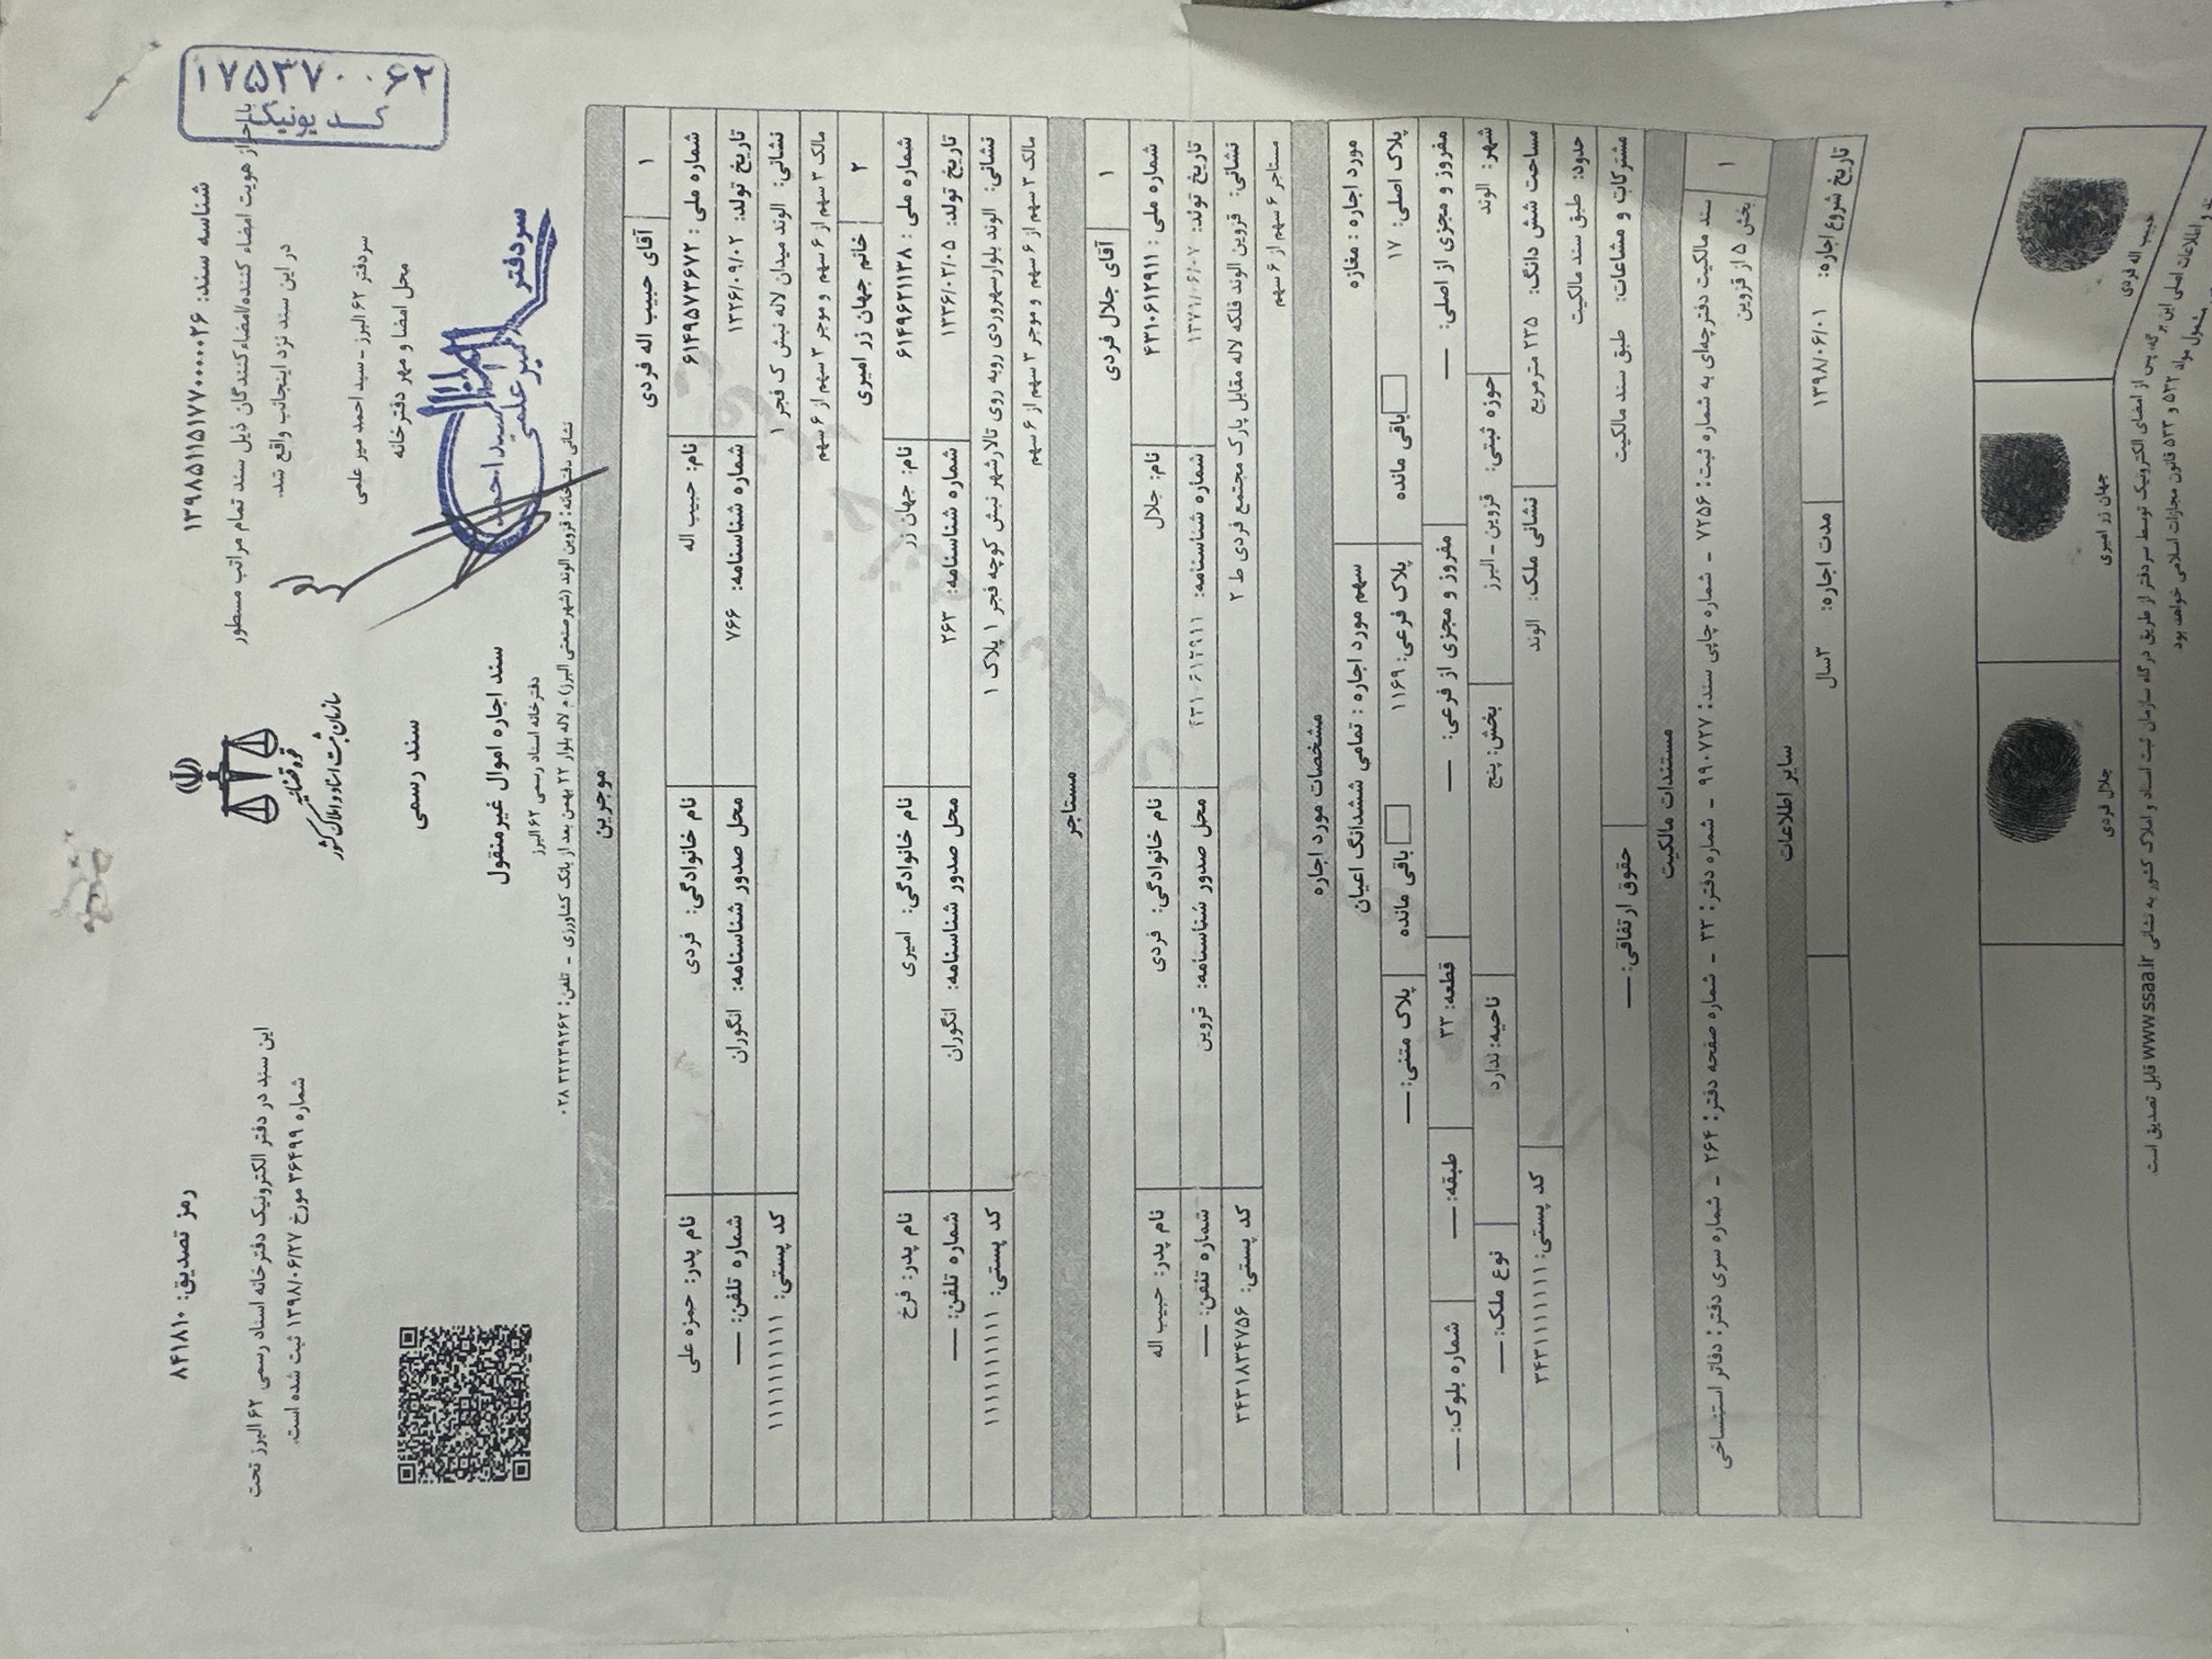 ۱۷۵۳۷۰۰۶۲
کد یونیک
شناسه سند: ۱۳۹۸۵۱۱۵۱۷۷۰۰۰۰۰۲۶
با احراز هویت امضاء کننده/امضاءکنندگان ذیل سند تمام مراتب مسطور
در این سند نزد اینجانب واقع شد.
سردفتر ۶۲ البرز - سید احمد میر علمی
محل امضا و مهر دفترخانه
سردفتر
سید احمد میر علمی
قوه قضائیه
سازمان ثبت اسناد و املاک کشور
سند رسمی
سند اجاره اموال غیرمنقول
دفترخانه اسناد رسمی ۶۲ البرز
رمز تصدیق: ۸۴۱۸۱۰
این سند در دفتر الکترونیک دفترخانه اسناد رسمی ۶۲ البرز تحت
شماره ۳۶۴۹۹ مورخ ۱۳۹۸/۰۶/۲۷ ثبت شده است.
نشانی دفترخانه: قزوین الوند (شهرصنعتی البرز) م لاله بلوار ۲۲ بهمن بعد از بانک کشاورزی - تلفن: ۰۲۸۳۲۲۳۹۲۶۲
موجرین
۱ آقای حبیب اله فردی
شماره ملی: ۶۱۴۹۵۷۳۶۷۲ نام: حبیب اله نام خانوادگی: فردی نام پدر: حمزه علی
تاریخ تولد: ۱۳۲۶/۰۹/۰۲ شماره شناسنامه: ۷۶۶ محل صدور شناسنامه: انگوران شماره تلفن: —
نشانی: الوند میدان لاله نبش ک فجر ۱ کد پستی: ۱۱۱۱۱۱۱۱۱۱
مالک ۳ سهم از ۶ سهم و موجر ۳ سهم از ۶ سهم
۲ خانم جهان زر امیری
شماره ملی: ۶۱۴۹۶۲۱۱۳۸ نام: جهان زر نام خانوادگی: امیری نام پدر: فرخ
تاریخ تولد: ۱۳۳۶/۰۳/۰۵ شماره شناسنامه: ۲۶۳ محل صدور شناسنامه: انگوران شماره تلفن: —
نشانی: الوند بلوارسهروردی روبه روی تالارشهر نبش کوچه فجر ۱ پلاک ۱ کد پستی: ۱۱۱۱۱۱۱۱۱۱
مالک ۳ سهم از ۶ سهم و موجر ۳ سهم از ۶ سهم
مستاجر
۱ آقای جلال فردی
شماره ملی: ۴۳۱۰۶۱۲۹۱۱ نام: جلال نام خانوادگی: فردی نام پدر: حبیب اله
تاریخ تولد: ۱۳۷۱/۰۶/۰۷ شماره شناسنامه: ۴۳۱۰۶۱۲۹۱۱ محل صدور شناسنامه: قزوین شماره تلفن: —
نشانی: قزوین الوند فلکه لاله مقابل پارک مجتمع فردی ط ۲ کد پستی: ۳۴۳۱۸۳۴۷۵۶
مستاجر ۶ سهم از ۶ سهم
مشخصات مورد اجاره
مورد اجاره: مغازه سهم مورد اجاره: تمامی ششدانگ اعیان
پلاک اصلی: ۱۷ باقی مانده پلاک فرعی: ۱۱۶۹ باقی مانده پلاک متنی: —
مفروز و مجزی از اصلی: — مفروز و مجزی از فرعی: — قطعه: ۳۳ طبقه: — شماره بلوک: —
شهر: الوند حوزه ثبتی: قزوین - البرز بخش: پنج ناحیه: ندارد نوع ملک: —
مساحت شش دانگ: ۲۲۵ مترمربع نشانی ملک: الوند کد پستی: ۳۴۳۱۱۱۱۱۱۱
حدود: طبق سند مالکیت
مشترکات و مشاعات: طبق سند مالکیت حقوق ارتفاقی: —
مستندات مالکیت
۱ سند مالکیت دفترچه‌ای به شماره ثبت: ۷۲۵۶ - شماره چاپی سند: ۹۹۰۷۲۷ - شماره دفتر: ۳۳ - شماره صفحه دفتر: ۲۶۴ - شماره سری دفتر: دفاتر استنساخی
بخش ۵ از قزوین
سایر اطلاعات
تاریخ شروع اجاره: ۱۳۹۸/۰۶/۰۱ مدت اجاره: ۳سال
حبیب اله فردی جهان زر امیری جلال فردی
اطلاعات اصلی این برگه، پس از امضای الکترونیک توسط سردفتر از طریق درگاه سازمان ثبت اسناد و املاک کشور به نشانی www.ssaa.ir قابل تصدیق است
مشمول مواد ۵۳۲ و ۵۳۳ قانون مجازات اسلامی خواهد بود.